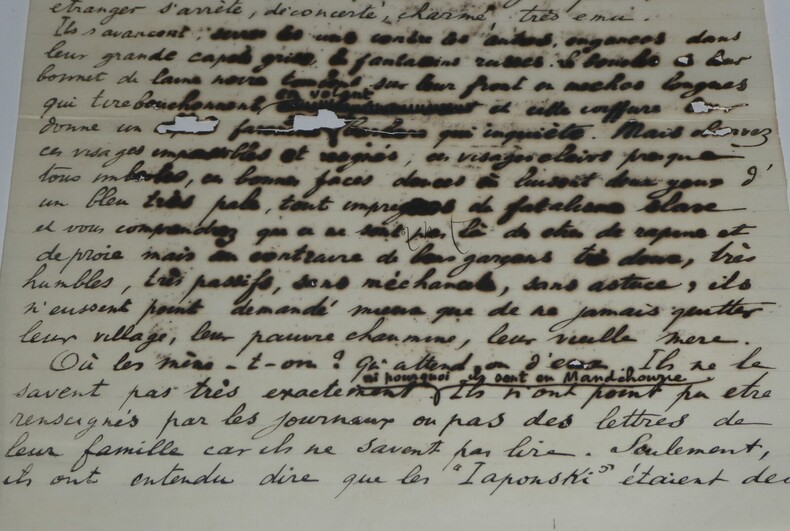 étranger s'arrête, déconcerté, charmé, très ému.
Ils s'avancent serrés les uns contre les autres, engoncés dans
leur grande capes grise, le fantassins russes. Ils leur
bonnet de laine noire sur leur front en mèches longues
qui tirebouchonnent en volant et cette coiffure
donne un qui inquiète. Mais observez
ces visages impassibles et résignés, ces visages clairs presque
tous imberbes, ces bonnes faces douces où luisent deux yeux d'
un bleu très pale, tout imprégnés de fatalisme slave
et vous comprendrez que ce ne sont pas là des etres de rapine et
de proie mais au contraire de bons garçons très doux, très
humbles, très passifs, sans méchanceté, sans astuce ; ils
n'eussent point demandé mieux que de ne jamais quitter
leur village, leur pauvre chaumine, leur vieille mere.
Où les mène-t-on ? Qu'attend-on d'eux. Ils ne le
ni pourquoi ils sont en Mandchourie
savent pas très exactement Ils n'ont point pu etre
renseignés par les journaux ou pas des lettres de
leur famille car ils ne savent pas lire. Seulement,
ils ont entendu dire que les "Iaponski" étaient des